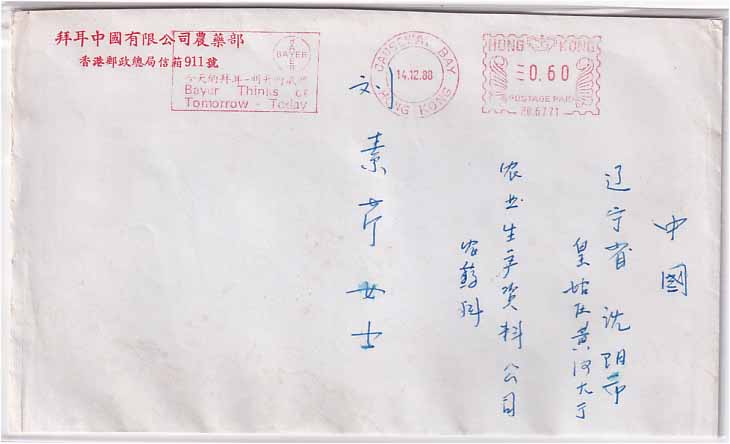 拜耳中國有限公司農藥部
香港郵政總局信箱911號
BAYER
BAYER
今天的拜耳-明天的成就
Bayer Thinks of
Tomorrow - Today
CAUSEWAY BAY
14.12.88
HONG KONG
HONG KONG
0.60
POSTAGE PAID
中國
辽宁省 沈阳市
皇姑区黄河大
农业生产資料公司
农药科
刘素芹女士